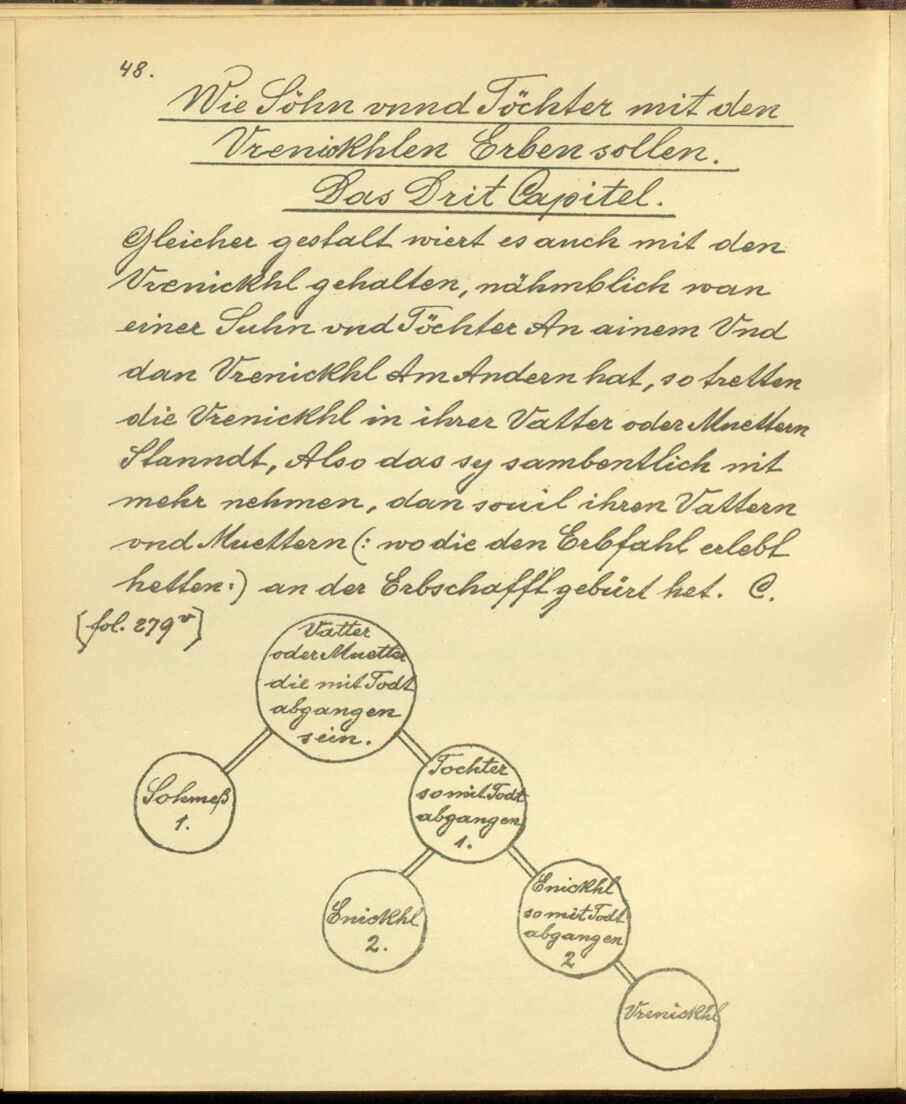 48.
Wie Söhn vnnd Töchter mit den
Vrenickhlen Erben sollen.
Das Drit Capitel.
Gleicher gestalt wiert es auch mit den
Vrenickhl gehalten, nähmblich wan
einer Suhn vnd Töchter An ainem Vnd
dan Vrenickhl Am Andern hat, so tretten
die Vrenickhl in ihrer Vatter oder Muettern
Stanndt, Also das sy sambentlich nit
mehr nehmen, dan souil ihren Vattern
vnd Muettern (: wo die den Erbfahl erlebt
hetten :) an der Erbschafft gebürt het. C.
[fol. 279v]
Vatter
oder Muetter
die mit Todt
abgangen
sein.
Sohmeß
1.
Tochter
so mit Todt
abgangen
1.
Enickhl
2.
Enickhl
so mit Todt
abgangen
2
Vrenickhl